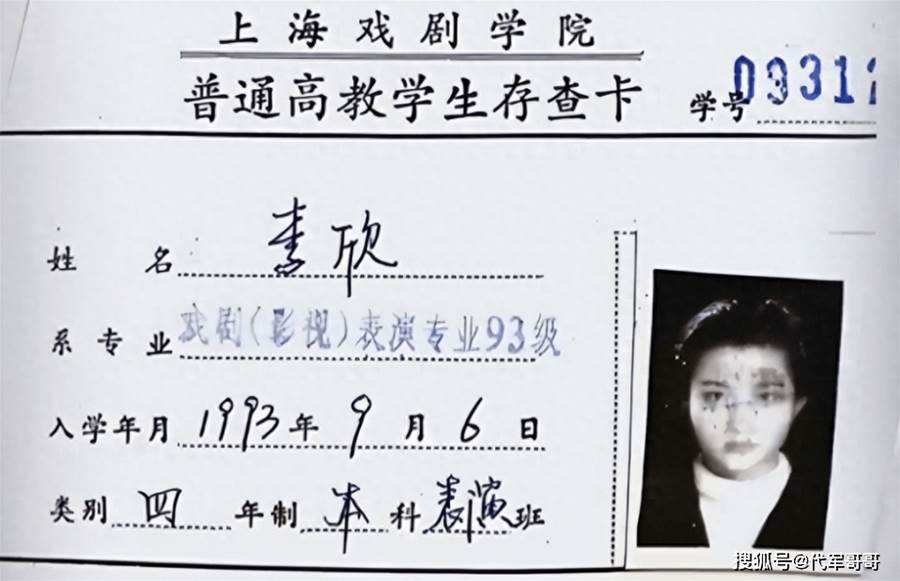 上海戏剧学院
普通高教学生存查卡 学号 09331
姓名 李欣
系专业 戏剧(影视)表演专业93级
入学年月 1993年9月6日
类别 四年制本科表演班
搜狐号@代军哥哥